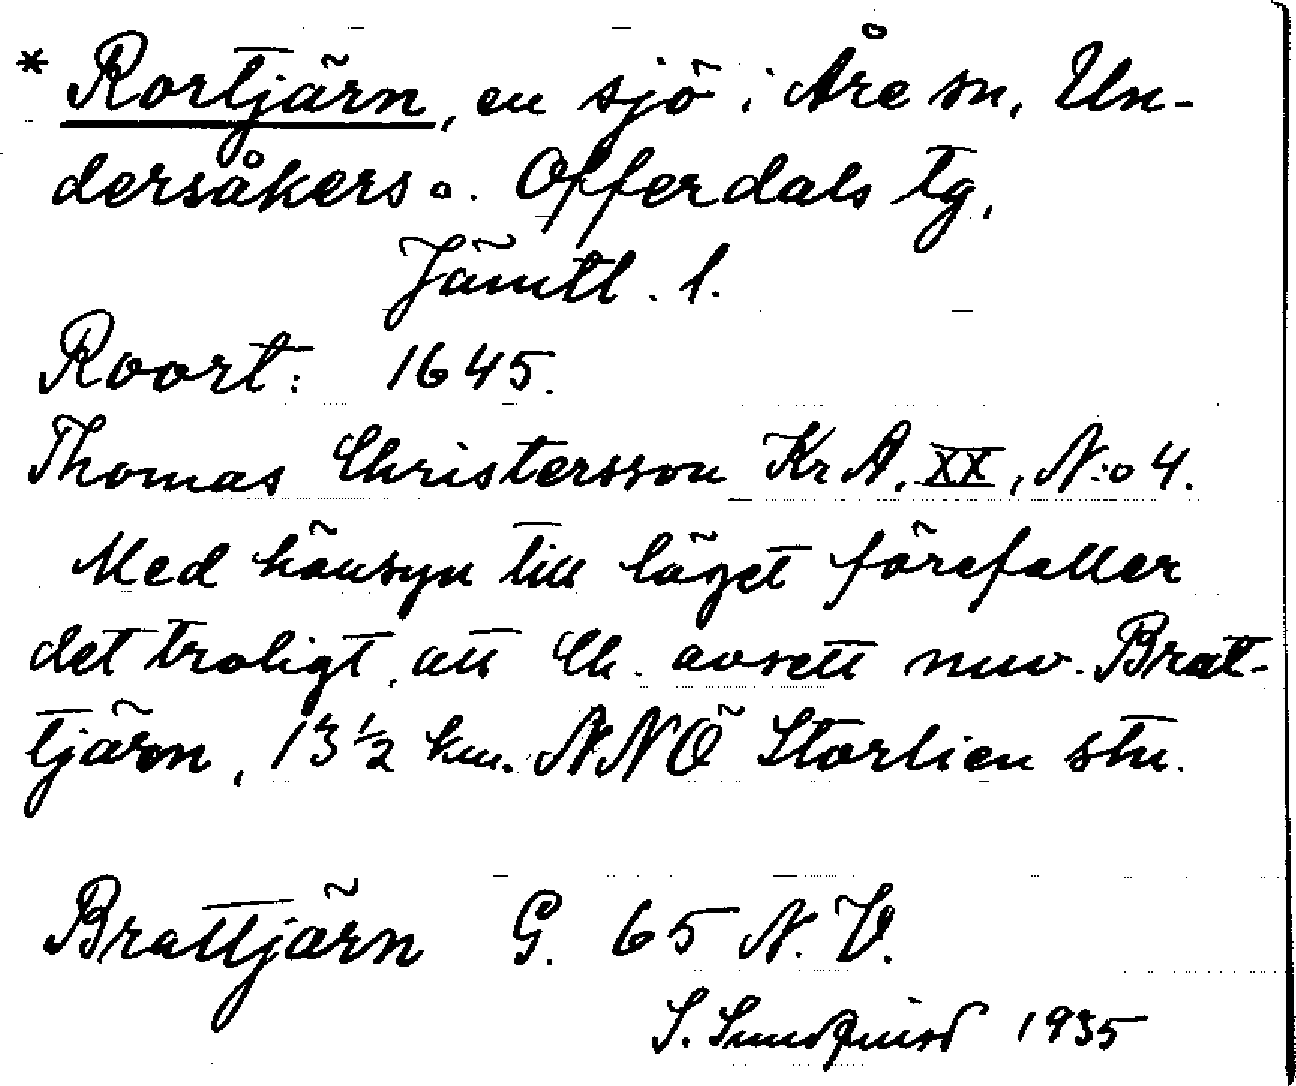 * Rortjärn, en sjö i Åre sn, Un-
dersåkers o. Offerdals tg,
Jämtl. l.
Roort: 1645.
Thomas Christersson Kr A. XX, N:o 4.
Med hänsyn till läget förefaller
det troligt, att Ch. avsett nuv. Brat-
tjärn, 13 1/2 km. NNÖ Storlien stn.
Brattjärn G. 65 N. V.
S. Sundquist 1935